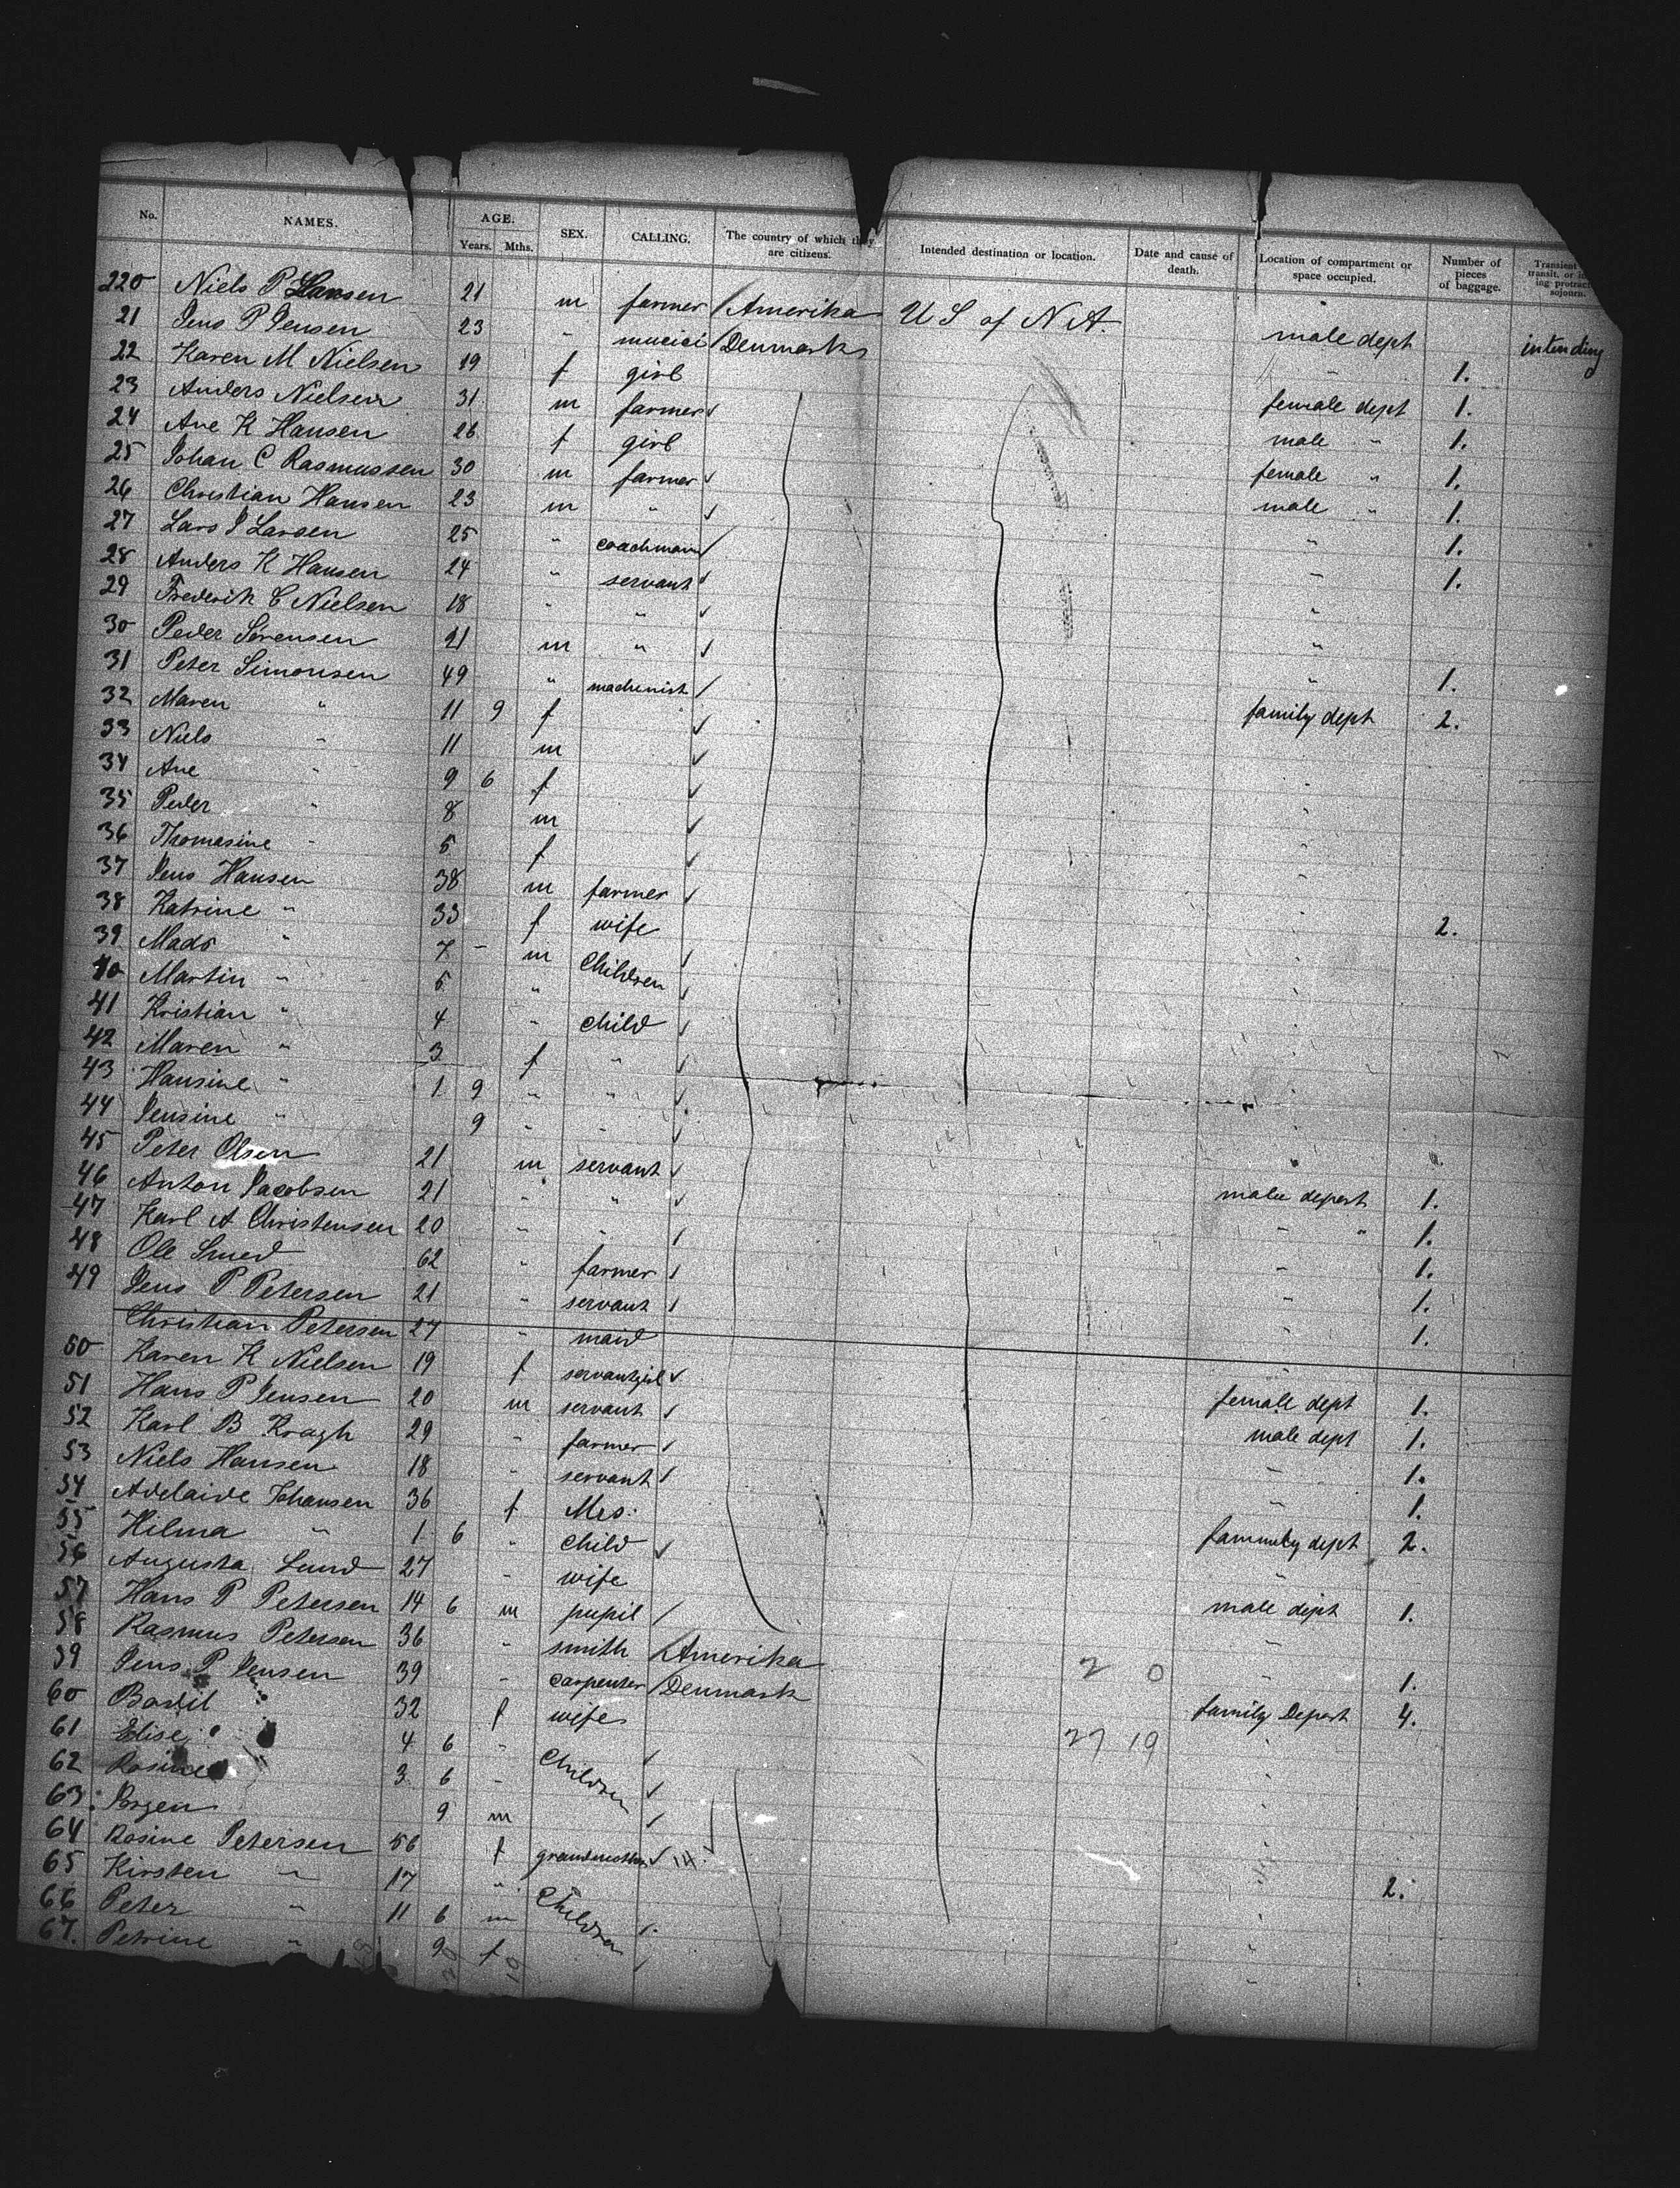 No. NAMES. AGE. Years. Mths. SEX. CALLING. The country of which they are citizens. Intended destination or location. Date and cause of death. Location of compartment or space occupied. Number of pieces of baggage. Transient transit, or in- ing protract sojourn.
220 Niels P Hansen 21 m farmer Amerika U S of N A. male dept intending
21 Jens P Jensen 23 " mucici Denmark " 1.
22 Karen M Nielsen 19 f girl female dept 1.
23 Anders Nielsen 31 m farmer male " 1.
24 Ane K Hansen 26 f girl female " 1.
25 Johan C Rasmussen 30 m farmer male " 1.
26 Christian Hansen 23 m " " 1.
27 Lars J Larsen 25 " coachman " 1.
28 Anders K Hansen 24 " servant "
29 Frederik C Nielsen 18 " " "
30 Peder Sörensen 21 m " " 1.
31 Peter Simonsen 49 " machenist family dept 2.
32 Maren " 11 9 f
33 Niels " 11 m "
34 Ane " 9 6 f "
35 Peder " 8 m "
36 Thomasine " 5 f "
37 Jens Hansen 38 m farmer " 2.
38 Katrine " 33 f wife "
39 Mads " 7 - m Children "
40 Martin " 5 " "
41 Kristian " 4 " child "
42 Maren " 3 f " "
43 Hansine " 1 9 " " "
44 Jensine " 9 " " "
45 Peter Olsen 21 m servant male depart 1.
46 Anton Jacobsen 21 " " " " 1.
47 Karl A Christensen 20 " " " 1.
48 Ole Smed 62 " farmer " 1.
49 Jens P Petersen 21 " servant " 1.
Christian Petersen 27 " maid "
50 Karen K Nielsen 19 f servantgirl female dept 1.
51 Hans P Jensen 20 m servant male dept 1.
52 Karl B Kragh 29 " farmer " 1.
53 Niels Hansen 18 " servant " 1.
54 Adelaide Johansen 36 f Mrs. fammily dept 2.
55 Hilma " 1 6 " Child "
56 Augusta Lund 27 " wife
57 Hans P Petersen 14 6 m pupil male dept 1.
58 Rasmus Petersen 36 " smith Amerika 2 0 " 1.
59 Jens P Jensen 39 " carpenter Denmark family Depart 4.
60 Bodil 32 f wife
61 Elise 4 6 " Children 27 19 "
62 Rosine 3 6 " "
63. Jörgen 9 m "
64 Rosine Petersen 56 f grandmother 14. " 2.
65 Kirsten " 17 " Children "
66 Peter " 11 6 m "
67. Petrine " 9 f "